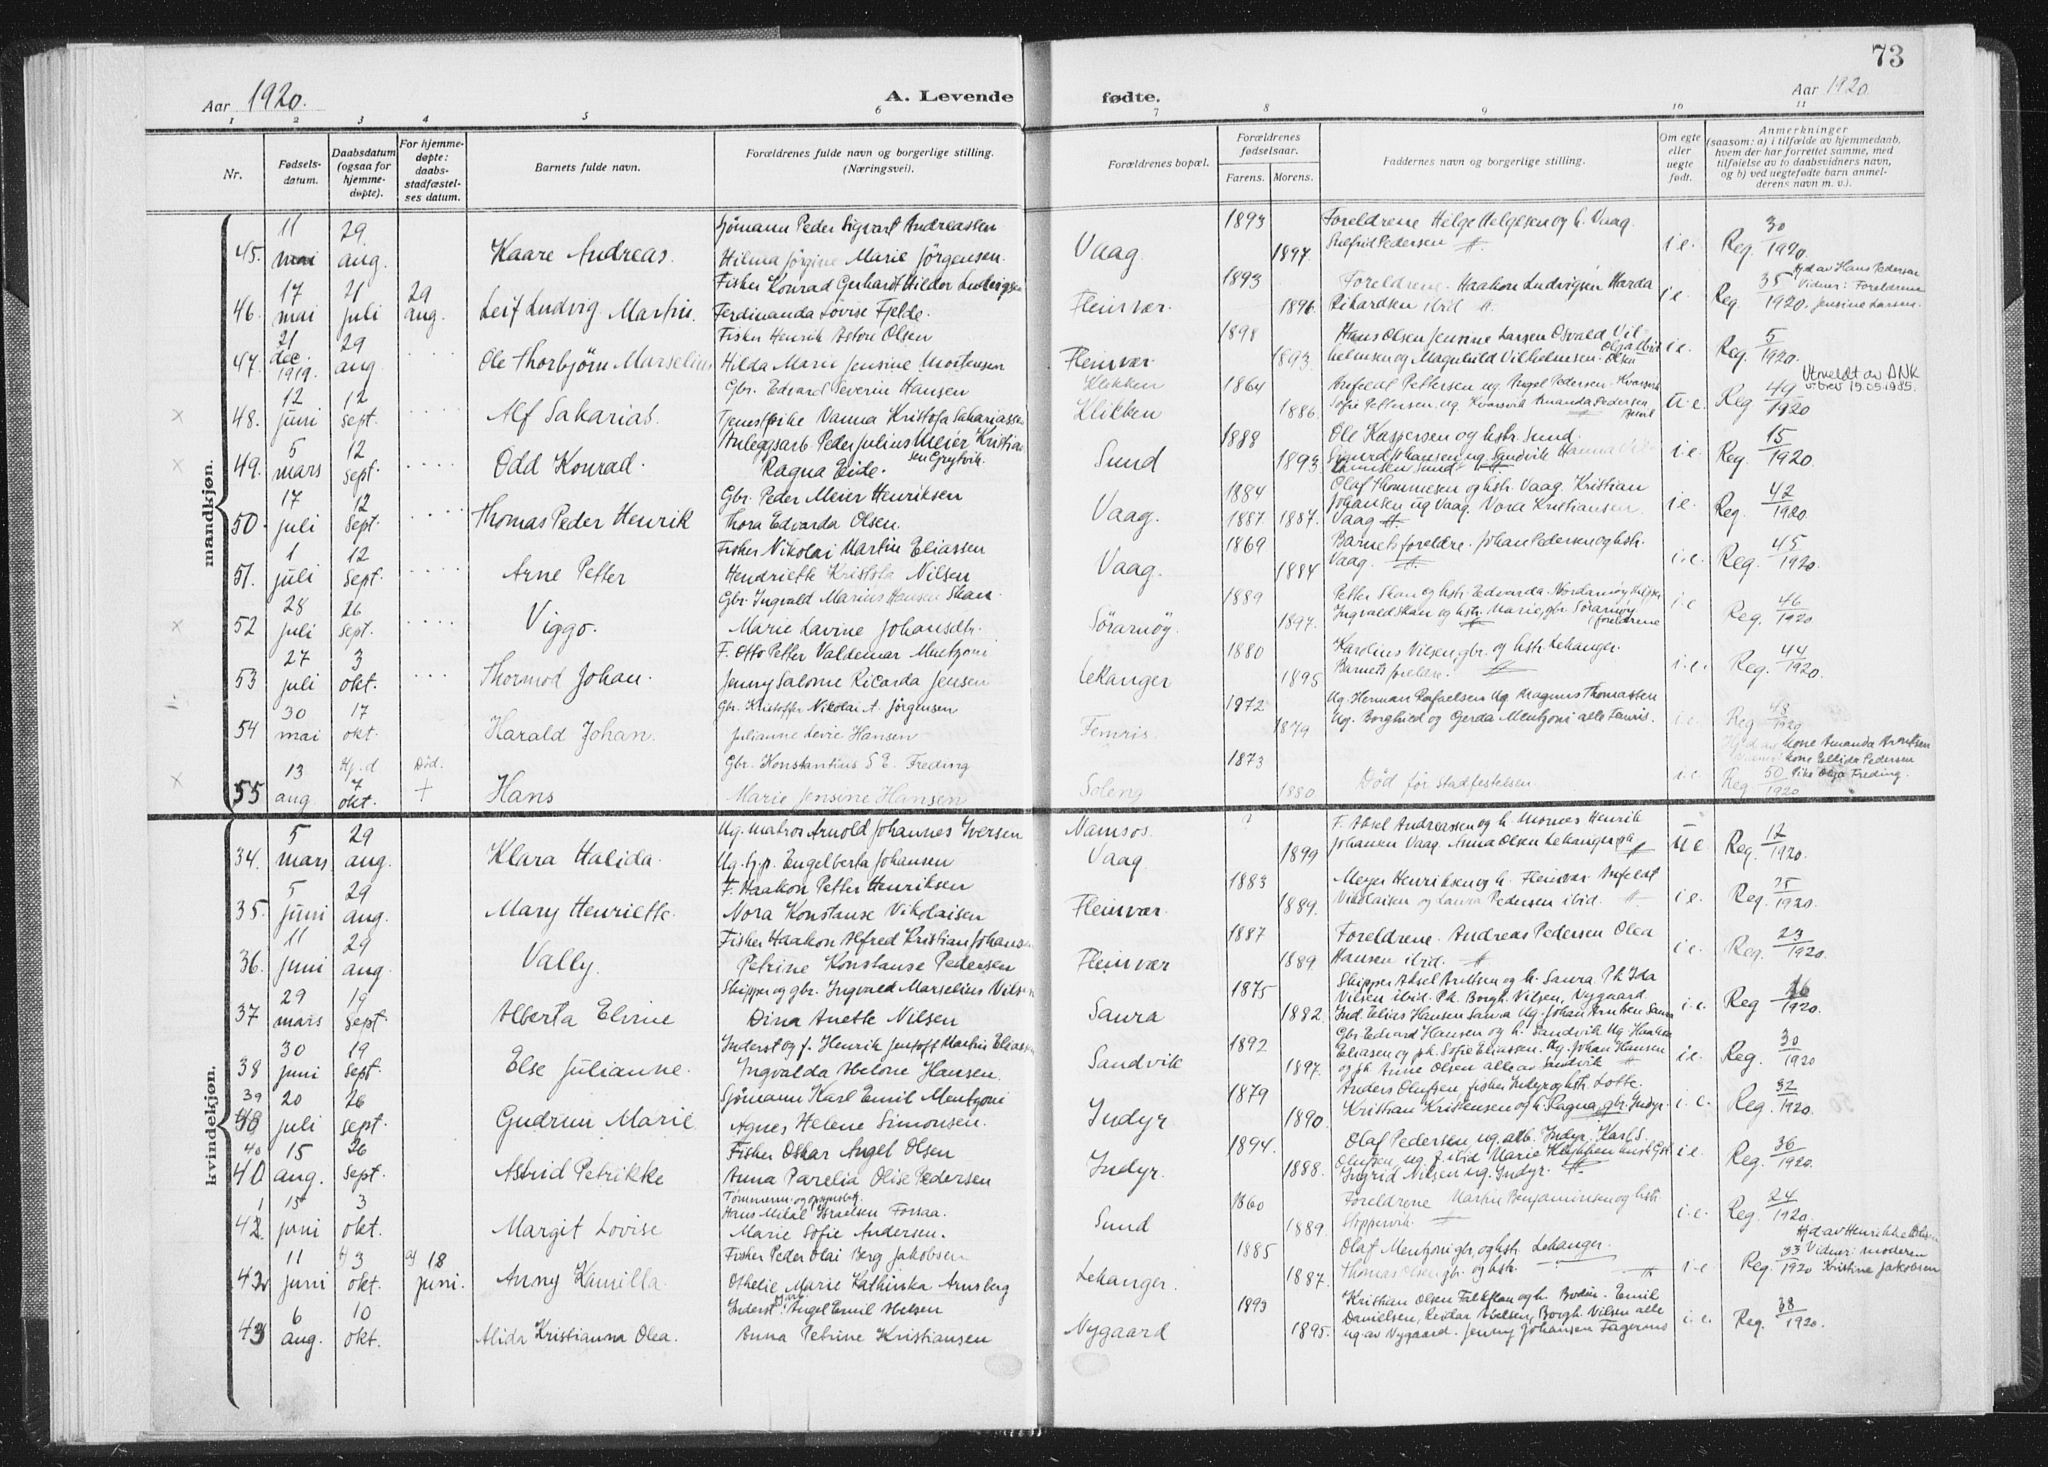 73
Aar 1920.
A. Levende
fødte.
Aar 1920
1 2 3 4 5 6
7 8 9 10 11
Nr.
Fødsels-
datum.
Daabsdatum
(ogsaa for
hjemme-
døpte).
For hjemme-
døpte:
daabs-
stadfæstel-
ses datum.
Barnets fulde navn.
Forældrenes fulde navn og borgerlige stilling.
(Næringsvei).
Forældrenes bopæl.
Forældrenes
fødselsaar.
Farens. Morens.
Faddernes navn og borgerlige stilling.
Om egte
eller
uegte
født.
Anmerkninger
(saasom: a) i tilfælde av hjemmedaab,
hvem der har forrettet samme, med
tilføielse av to daabsvidners navn,
og b) ved uegtefødte barn anmel-
derens navn m. v.).
mandkjøn.
11 29 Sjømann Peder Sigvart Andreassen 1893 Foreldrene Helge Helgesen og h. Vaag
45. mai aug. Kaare Andreas. Hilma Jørgine Marie Jørgensen. Vaag 1897. Pedersen i.e. Reg. 30/1920.
17 21 29 Fisker Konrad Gerhardt Hilder Ludvigsen 1893 Foreldrene. Haakon Ludvigsen Harda Hjd av Hans Pedersen
46. mai juli aug. Leif Ludvig Martin. Ferdinanda Lovise Fjelde. Fleinvær. 1896. Rikardsen ibid i.e. Reg. 35/1920. Vidner: Foreldrene Jensine Larsen.
21 29 Fisker Henrik Astore Olsen 1898 Hans Olsen Jensine Larsen Osvald Vil-
47. dec. 1919. aug Ole Thorbjørn Marselius Hilda Marie Jensine Mortensen Fleinvær. 1893. helmsen og Magnhild Vilhelmsen Olsen i.e. Reg. 5/1920.
12 12 Gbr. Edvard Severin Hansen Klikken 1864 Anfeldt Pettersen ug. Angel Pedersen Kvarsvik Utmeldt av DNK
48. juni sept. Alf Sakarias. Tjenestpike Vanna Kristofa Sakariassen Klikken 1886. Sofie Pettersen, ug. Kvarsvik Amanda Pedersen u.e. Reg 49/1920 v. brev 19.03.1985.
5 12 Anleggsarb Peder Julius Meier Kristian 1888 Ole Kaspersen og hstr. Sund.
49. mars sept. Odd Konrad. sen Grytvik. Ragna Eide. Sund 1893 Sigurd Johansen ug. Sandvik Hanna i.e. Reg. 15/1920.
17 12 Gbr. Peder Meier Henriksen 1884 Olaf Thommesen og hstr. Vaag. Kristian
50. juli sept. Thomas Peder Henrik Thora Edvarda Olsen. Vaag. 1887. 1887. Johansen ug Vaag. Nora Kristiansen Vaag i.e. Reg. 42/1920.
1 12 Fisker Nikolai Martin Eliassen 1869 Barnets foreldre. Johan Pedersen og hstr.
51. juli sept. Arne Petter Hendriette Kristofa Nilsen Vaag. 1884 Vaag. i.e. Reg. 45/1920.
28 26 Gbr. Ingvald Marius Hansen Skau. 1889 Petter Skau og hstr Edvarda. Nordarnøy. Skipper
52 juli sept. Viggo. Marie Lavine Johansdtr. Sørarnøy. 1897. Ingvald Skau og hstr. Marie, gbr. Sørarnøy. (foreldrene i.e Reg. 46/1920
27 3 F. Otto Petter Valdemar Mentzoni 1880 Karolius Nilsen, gbr. og hstr. Lekanger.
53 juli okt. Thormod Johan. Jenny Salome Ricarda Jensen Lekanger 1895 Barnets foreldre. i.e. Reg. 44/1920.
30 17 Gbr. Kristoffer Nikolai A. Jørgensen 1872 Ug. Herman Rafaelsen Ug. Magnus Thomassen
54 mai okt. Harald Johan. Julianne Levie Hansen Femris. 1879 Ug. Borghild og Gerda Mentzoni alle Femris. i.e. Reg 48/1920
13 Hj.d Død. Gbr. Konstantius S E. Freding 1873 Hjd av Kone Amanda Arntsen
55 aug 7 okt. + Hans Marie Jensine Hansen Soleng 1880 Død før stadfestelsen. i.e Reg 50/1920 Kone Ellida Pedersen Pike Olga Freding.
kvindekjøn.
5 29 Ug. Matros Arnold Johannes Iversen Namsos. ? F. Aksel Andreassen og h. Mornes Henrik
34. mars aug. Klara Halida. Ug. tj.p. Engelberta Johansen Vaag. 1899 Johansen Vaag. Anna Olsen Lekanger pk u.e. Reg. 12/1920.
5 29 F. Haakon Petter Henriksen 1883 Meyer Henriksen og h. Fleinvær. Anfeldt
35. juni aug. Mary Henriette. Nora Konstanse Nikolaisen Fleinvær. 1889. Nikolaisen og Laura Pedersen ibid. i.e. Reg. 25/1920.
11 29 Fisker Haakon Alfred Kristian Johansen 1887 Foreldrene. Andreas Pedersen Olea
36. juni aug. Vally. Petrine Konstanse Pedersen Fleinvær 1889. Hansen ibid. i.e. Reg. 23/1920.
29 19 Skipper og gbr. Ingvald Marselius Nilsen 1875 Skipper Aksel Arntsen og h. Saura. Pk Ida
37 mars sept. Alberta Elvine Dina Anette Nilsen Saura 1882. Nilsen ibid. Pk. Borgh. Nilsen, Nygaard Ind. Elias Hansen Saura Ug. Johan Arntsen Saura i.e. Reg 16/1920.
30 19 Inderst og f. Henrik Jentoft Martin Eliassen 1892 Gbr Edvard Hansen og h. Sandvik Ug Haakon
38 juni sept. Else Julianne. Ingvalda Helene Hansen. Sandvik 1897. Eliasen og pk. Sofie Eliassen. Ug. Johan Hansen og pk Anne Olsen alle av Sandvik i.e. Reg. 30/1920
39 20 26 Sjømann Karl Emil Mentzoni 1879 Anders Olufsen, fisker Indyr og hstr. Lotte.
40 juli sept. Gudrun Marie Agnes Helene Simonsen. Indyr 1890. Kristian Kristensen og h. Ragna, gbr. Indyr. i.e. Reg. 32/1920.
40 15 26 Fisker Oskar Angel Olsen 1894. Olaf Pedersen, ug. arb. Indyr. Karl S.
40 aug. sept. Astrid Petrikke Anna Parelia Olise Pedersen Indyr. 1888. Olufsen, ug. f. ibid Marie Ingrid Nilsen ug. Indyr. i.e. Reg. 36/1920.
1 15 3 Tømmerm. og opsynsbtj. Hans Mikal Israelsen Forsaa. 1860 Foreldrene Martin Benjaminsen og hstr
42. juni okt. Margit Lovise Marie Sofie Andersen. Sund 1889. Stoppervik. i.e. Reg. 24/1920.
11 3 18 Fisker Peder Olai Berg Jakobsen 1885 Olaf Mentzoni gbr. og hstr. Lekanger. Hjd av Henrikke Olsen
42 juni okt. juni. Anny Kamilla. Othelie Marie Kathinka Arnsberg Lekanger. 1887. Thomas Olsen gbr og hstr. i.e Reg. 33/1920 Vidner: moderen Kristine Jakobsen
6 10 Inderst Angel Emil Nelsen 1893 Kristian Olsen Falkflau og h. Bodin. Emil
43 aug. okt. Alida Kristianna Olea. Anna Petrine Kristiansen Nygaard 1895. Danielsen, Reidar Nelsen, Borgh. Nilsen alle ug av Nygaard. Jenny Johansen i.e. Reg. 38/1920.